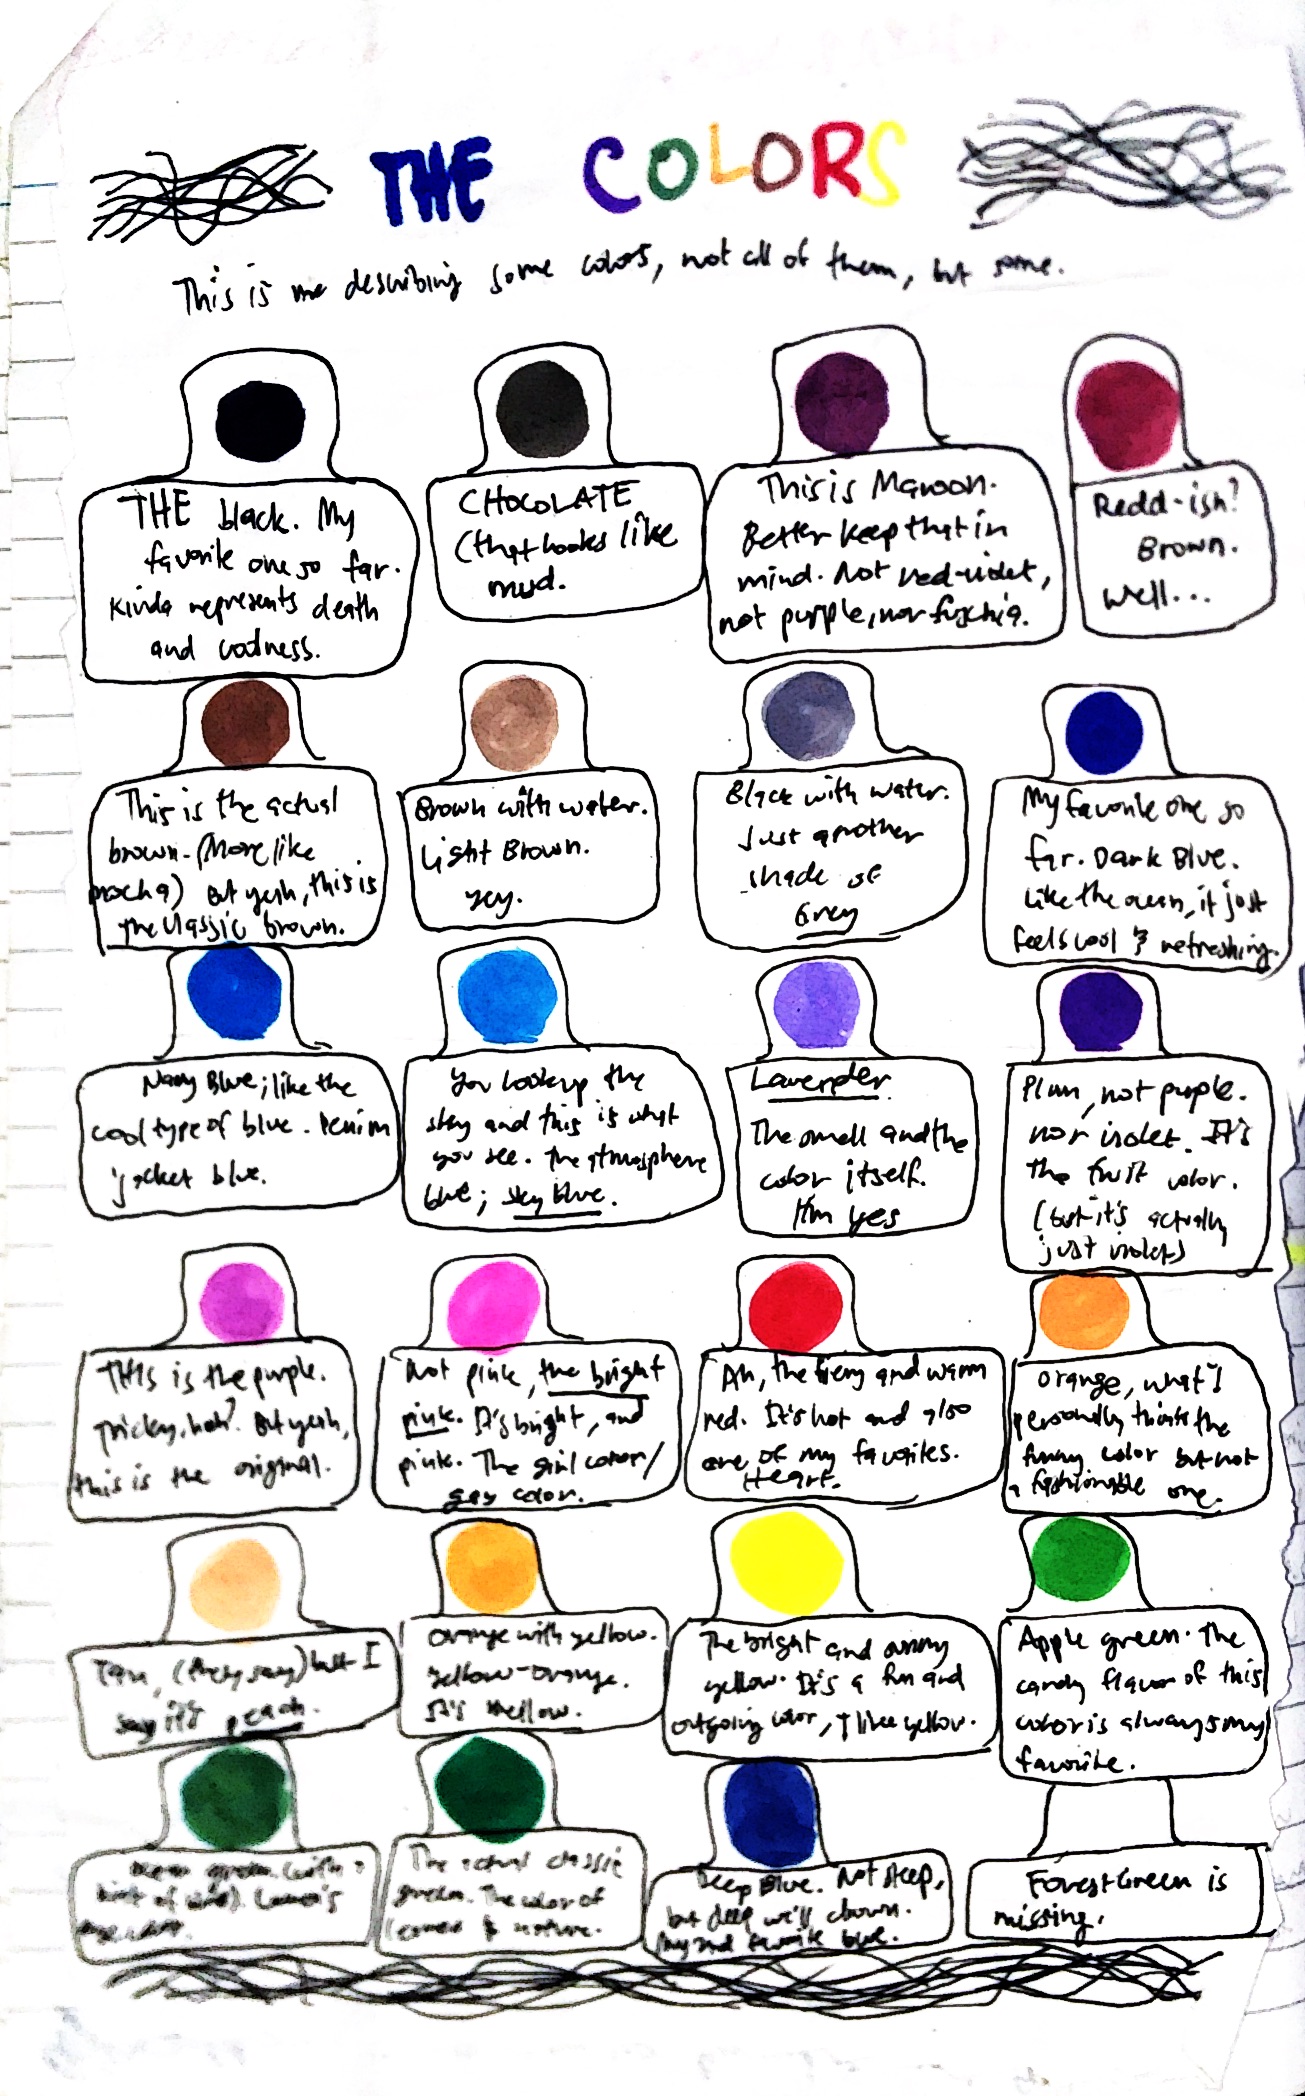 THE COLORS
This is me describing some colors, not all of them, but some.
THE black. My
favorite one so far.
Kinda represents death
and coolness.
CHOCOLATE
(that looks like
mud.
This is Maroon.
Better keep that in
mind. Not red-violet,
not purple, nor fuschia.
Redd-ish?
Brown.
Well...
This is the actual
brown. (More like
mocha) But yeah, this is
the classic brown.
Brown with water.
Light Brown.
yey.
Black with water.
Just another
shade of
Grey
My favorite one so
far. Dark Blue.
Like the ocean, it just
feels cool & refreshing.
Navy Blue; like the
cool type of blue. Denim
jacket blue.
You look up the
sky and this is what
you see. The atmosphere
blue; sky blue.
Lavender.
The smell and the
color itself.
Hm yes
Plum, not purple.
nor violet. It's
the fruit color.
(but it's actually
just violet)
THIS is the purple.
Tricky, huh? But yeah,
this is the original.
Not pink, the bright
pink. It's bright, and
pink. The girl color/
gay color.
Ah, the fiery and warm
red. It's hot and also
one of my favorites.
Heart.
Orange, what I
personally thinks the
funny color but not
a fashionable one.
Tan, (they say) but I
say it's peach.
Orange with yellow.
Yellow-Orange.
It's mellow.
The bright and sunny
yellow. It's a fun and
outgoing color, I like yellow.
Apple green. The
candy flavor of this
color is always my
favorite.
green (with a
hint of
The actual classic
green. The color of
leaves & nature.
Deep Blue. Not steep,
but deep we'll drown.
My 2nd favorite blue.
Forest Green is
missing.